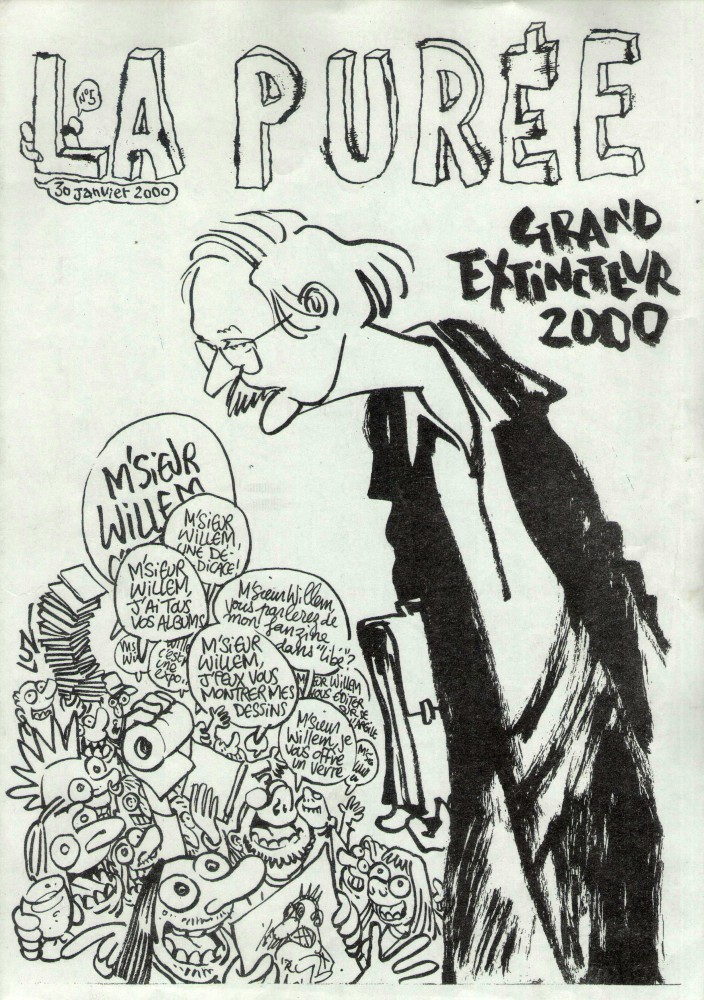 LA PURÉE
N°5
30 janvier 2000
GRAND
EXTINCTEUR
2000
M'SIEUR
WILLEM
M'SIEUR
WILLEM,
UNE DÉ-
DICACE!
M'SIEUR
WILLEM,
J'AI TOUS
VOS ALBUMS
M'Sieur Willem,
vous parlerez de
mon fanzine
dans "Libé"?
c'est
une
expo.
M'SIEUR
WILLEM,
J'PEUX VOUS
MONTRER MES
DESSINS
WILLEM
VOUS ÉDITER
SUR DE
L'ARGILE
M'Sieur
Willem, je
vous offre
un verre
LUZ